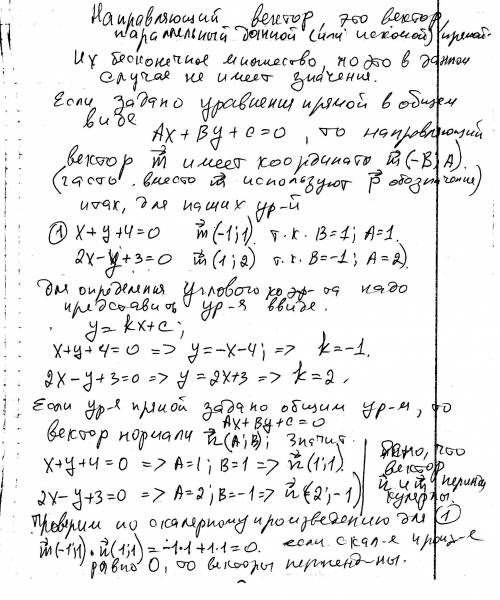 Направляющий вектор, это вектор,
параллельный данной (или искомой) прямой.
Их бесконечное множество, но это в данном
случае не имеет значения.
Если задано уравнения прямой в общем
виде
Ax + By + c = 0, то направляющий
вектор m⃗ имеет координаты m⃗(-B; A).
(часто вместо m⃗ используют p⃗ обозначение)
итак, для наших ур-й
① x + y + 4 = 0 m⃗(-1; 1) т.к. B=1; A=1.
2x - y + 3 = 0 m⃗(1; 2) т.к. B=-1; A=2)
Для определения углового коэф-та надо
представить ур-я ввиде.
y = kx + c;
x + y + 4 = 0 => y = -x - 4; => k = -1.
2x - y + 3 = 0 => y = 2x + 3 => k = 2.
Если ур-я прямой задано общим ур-м, то
Ax + By + c = 0
вектор нормали n⃗(A; B); Значит.
x + y + 4 = 0 => A = 1; B = 1 => n⃗(1; 1).
2x - y + 3 = 0 => A = 2; B = -1 => n⃗(2; -1)
что
вектор
n⃗ и m⃗ перпенди
кулярны.
Проверим по скалярному произведению для ①
m⃗(-1; 1) · n⃗(1; 1) = -1·1 + 1·1 = 0. если скал-е произ-е
равно 0, то векторы перпенд-ны.